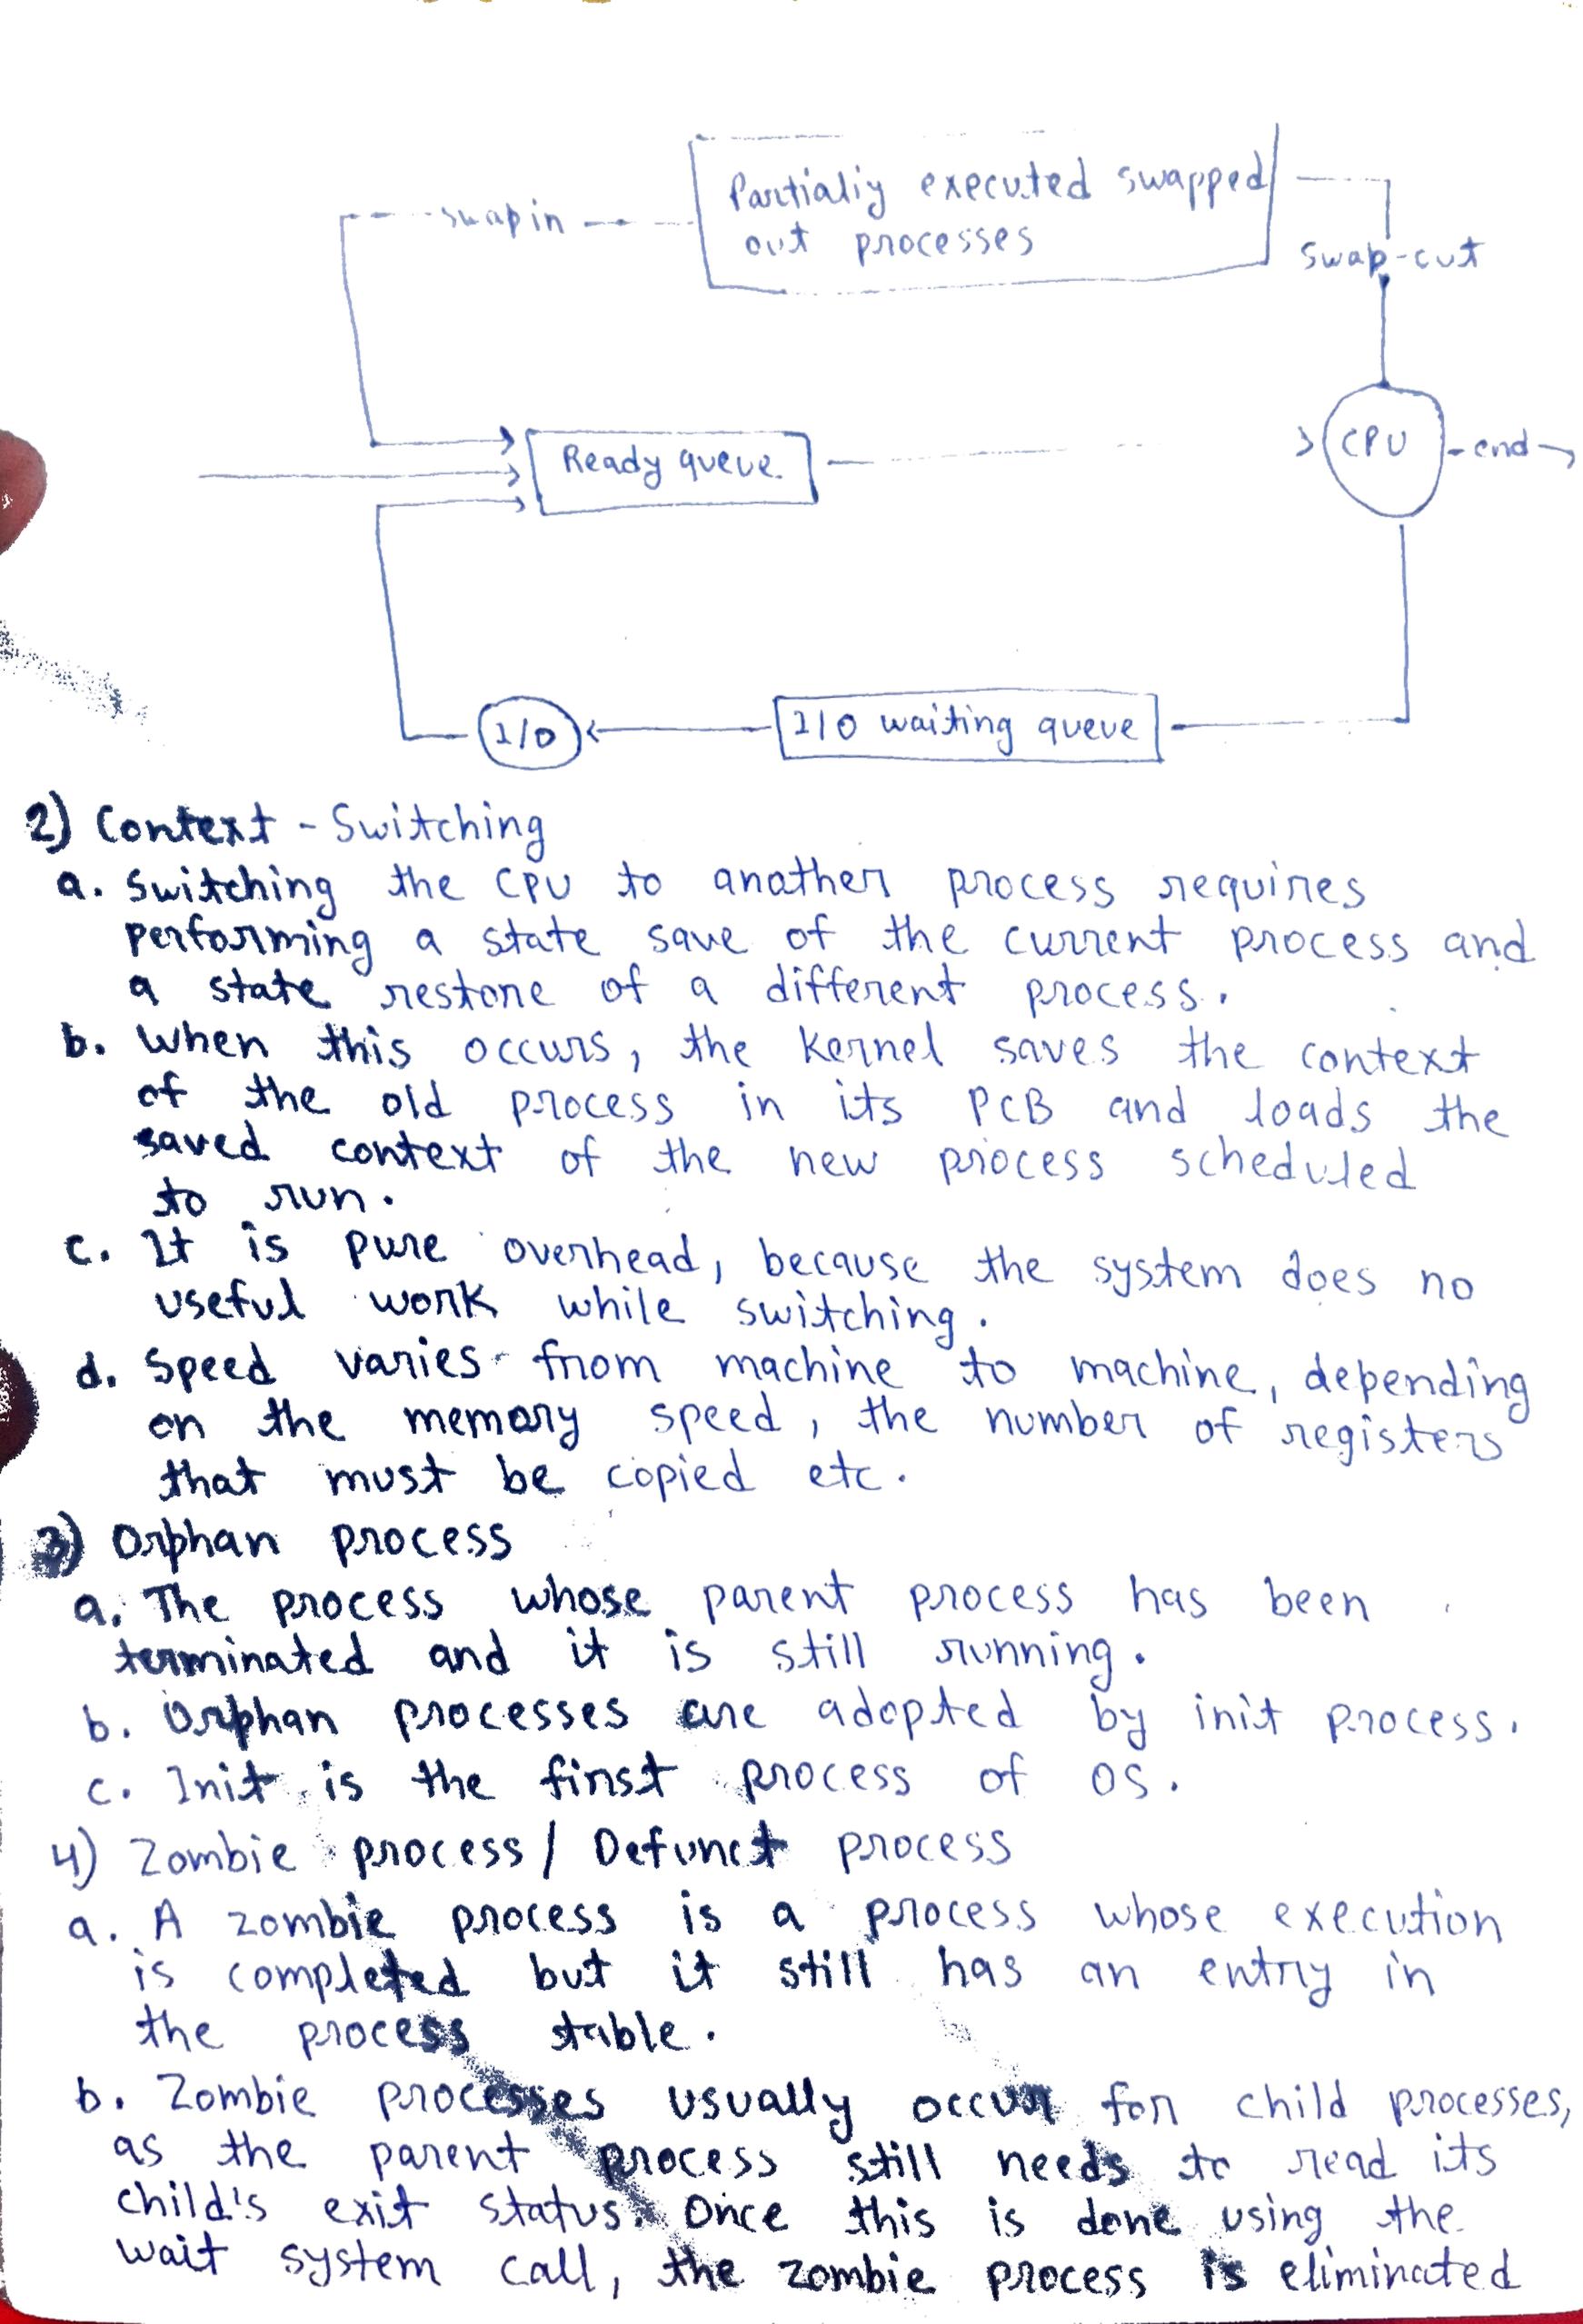 Partially executed swapped
out processes
swap in
swap-out
Ready queue
CPU
end
I/O
I/O waiting queue
2) Context - Switching
a. Switching the CPU to another process requires
performing a state save of the current process and
a state restore of a different process.
b. When this occurs, the kernel saves the context
of the old process in its PCB and loads the
saved context of the new process scheduled
to run.
c. It is pure overhead, because the system does no
useful work while switching.
d. Speed varies from machine to machine, depending
on the memory speed, the number of registers
that must be copied etc.
3) Orphan process
a. The process whose parent process has been
terminated and it is still running.
b. Orphan processes are adopted by init process.
c. Init is the first process of OS.
4) Zombie process / Defunct process
a. A zombie process is a process whose execution
is completed but it still has an entry in
the process table.
b. Zombie processes usually occur for child processes,
as the parent process still needs to read its
child's exit status. Once this is done using the
wait system call, the zombie process is eliminated